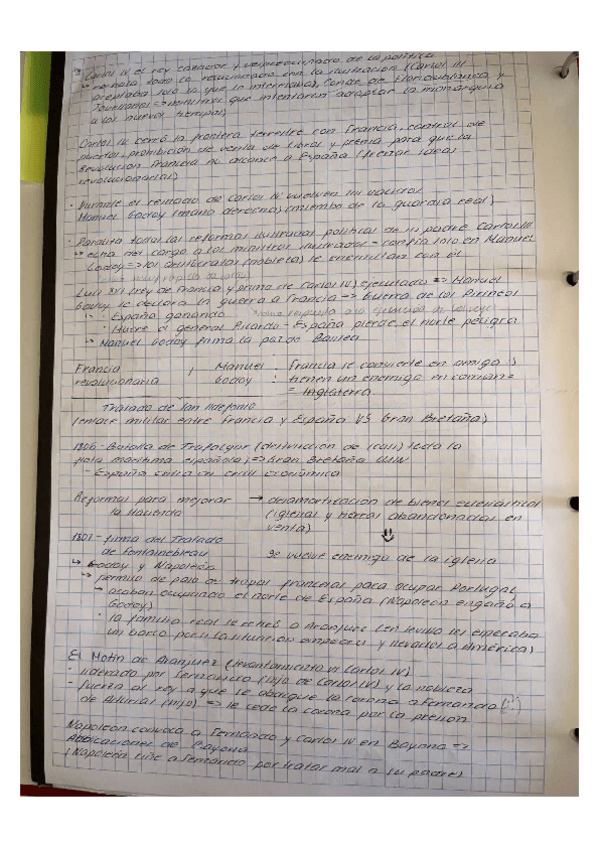 Carlos IV el rey cazador y despreocupado de la política
↳ rechaza todo lo relacionado con la ilustración (Carlos III
aceptaba solo lo que le interesaba), Conde de Floridablanca y
Jovellanos => ministros que intentaron adaptar la monarquía
a los nuevos tiempos)
Carlos IV cerró la frontera terrestre con Francia, control de
puertos, prohibición de venta de libros y prensa para que la
Revolución Francesa no alcance a España (frenar ideas
revolucionarias)
· Durante el reinado de Carlos IV vuelven los validos:
Manuel Godoy (mano derecha) (miembro de la guardia real)
· Paraliza todas las reformas ilustradas políticas de su padre Carlos III
↳ echa del cargo a los ministros ilustrados - confía solo en Manuel
Godoy => los aristócratas (nobleza) se enemistan con él
Luis XVI (rey de Francia y primo de Carlos IV) ejecutado => Manuel
Godoy le declara la guerra a Francia -> Guerra de los Pirineos
· España ganando
· Muere el general Ricardo - España pierde, el norte peligra
↳ Manuel Godoy firma la paz de Basilea
Francia revolucionaria , Manuel Godoy : Francia se convierte en amiga :)
tienen un enemigo en común =
= Inglaterra
Tratado de San Ildefonso
(enlace militar entre Francia y España VS Gran Bretaña)
1805 - Batalla de Trafalgar (destrucción de (casi) toda la
flota marítima española) => Gran Bretaña WIN
- España entra en crisis económica
Reformas para mejorar la Hacienda → desamortización de bienes eclesiásticos
(iglesias y tierras abandonadas en
venta)
⇓
1807 - firma del Tratado
de Fontainebleau
Se vuelve enemigo de la iglesia
↳ Godoy y Napoleón
↳ permiso de paso de tropas francesas para ocupar Portugal
↳ acaban ocupando el norte de España (Napoleón engaña a
Godoy)
· la familia real se retiró a Aranjuez (en Sevilla les esperaba
un barco por si la situación empeora y llevarlos a América)
El Motín de Aranjuez (levantamiento vs Carlos IV)
- liderado por Fernando (hijo de Carlos IV) y la nobleza
- fuerza al rey a que le abdique la corona a Fernando
de Asturias (hijo) => le cede la corona por la presión
Napoleón convoca a Fernando y Carlos IV en Bayona =>
Abdicaciones de Bayona
(Napoleón riñe a Fernando por tratar mal a su padre)